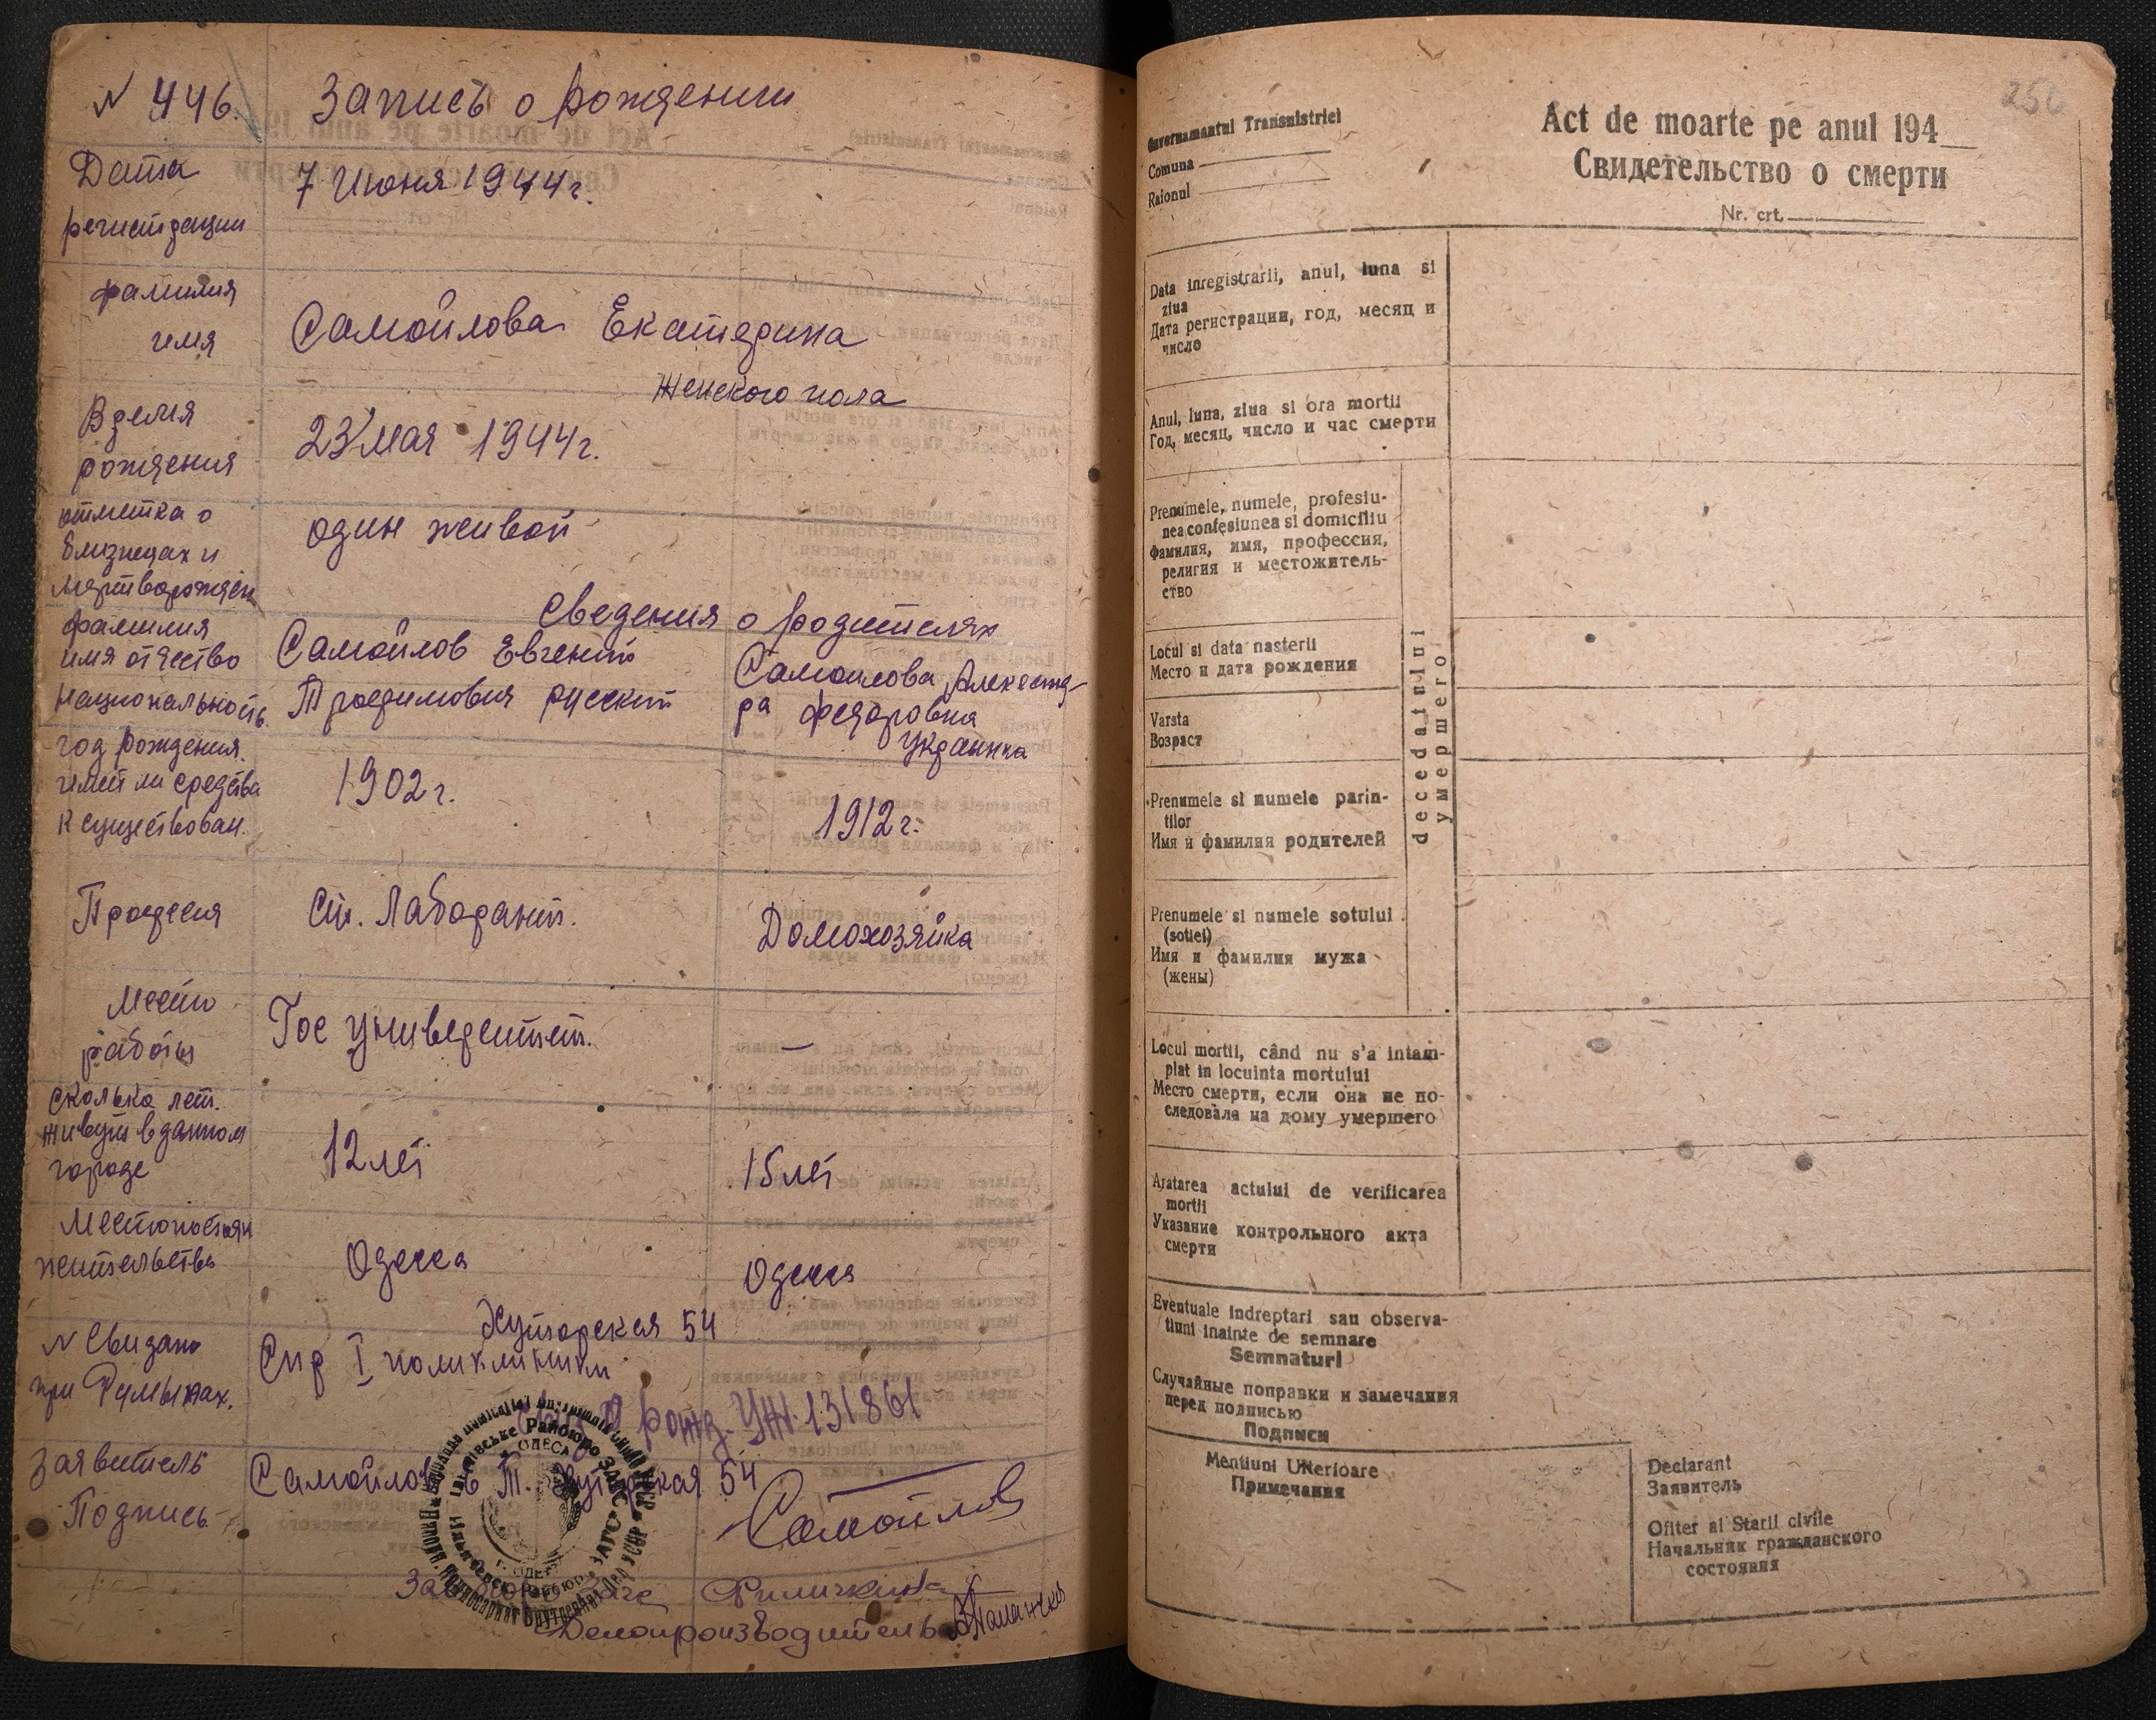 N 446. Запись о рождении
Дата
регистрации
7 Июня 1944 г.
фамилия
имя
Самойлова Екатерина
Женского пола
Время
рождения
23 Мая 1944 г.
отметка о
близнецах и
мертворожден
один живой
Сведения о родителях
фамилия
имя отчество
национальность
Самойлов Евгений
Трофимович русский
Самойлова Александ-
ра Федоровна
Украинка
год рождения
имеет ли средства
к существован.
1902 г.
1912 г.
Профессия
Ст. Лаборант.
Домохозяйка
Место
работы
Гос университет.
—
сколько лет.
живут в данном
городе
12 лет
15 лет
Местопостоян
жительства
Одесса
Одесса
Хуторская 54
N Свид
при Румынах.
Спр I поликлиники
рожд. УЖ. 131861
Заявитель
Подпись
Самойлов Т. Хуторская 54
Самойлов
Делопроизводитель
250
Guvernamantul Transnistriei
Comuna
Raionul
Act de moarte pe anul 194
Свидетельство о смерти
Nr. crt.
Data inregistrarii, anul, luna si
ziua
Дата регистрации, год, месяц и
число
Anul, luna, ziua si ora mortii
Год, месяц, число и час смерти
Prenumele, numele, profesiu-
nea confesiunea si domiciliu
фамилия, имя, профессия,
религия и местожитель-
ство
Locul si data nasterii
Место и дата рождения
Varsta
Возраст
Prenumele si numele parin-
tilor
Имя и фамилия родителей
Prenumele si numele sotului
(sotiei)
Имя и фамилия мужа
(жены)
decedatului
умершего
Locul mortii, când nu s'a intam-
plat in locuinta mortului
Место смерти, если она не по-
следовала на дому умершего
Aratarea actului de verificarea
mortii
Указание контрольного акта
смерти
Eventuale indreptari sau observa-
tiuni inainte de semnare
Semnaturi
Случайные поправки и замечания
перед подписью
Подписи
Mentiuni Ulterioare
Примечания
Declarant
Заявитель
Ofiter al Starii civile
Начальник гражданского
состояния